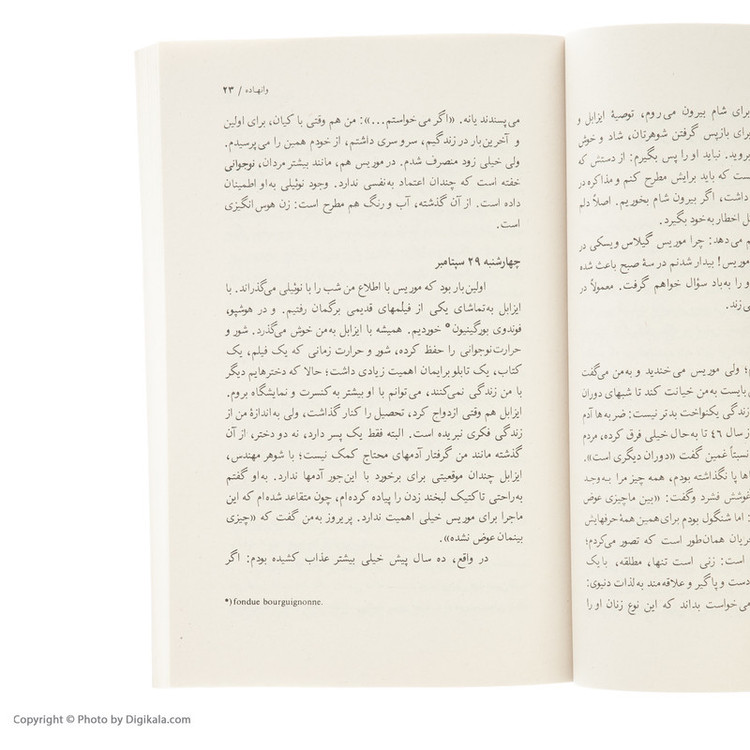 وانهاده / ۲۳
می‌پسندند یانه. «اگر می‌خواستم...»: من هم وقتی با کیان، برای اولین
و آخرین‌بار در زندگیم، سر و سری داشتم، از خودم همین را می‌پرسیدم.
ولی خیلی زود منصرف شدم. در موریس هم، مانند بیشتر مردان، نوجوانی
خفته است که چندان اعتماد به‌نفسی ندارد. وجود نوئیلی به‌او اطمینان
داده است. از آن گذشته، آب و رنگ هم مطرح است: زن هوس‌انگیزی
است.
چهارشنبه ۲۹ سپتامبر
اولین‌بار بود که موریس با اطلاع من شب را با نوئیلی می‌گذراند. با
ایزابل به‌تماشای یکی از فیلمهای قدیمی برگمان رفتیم. و در هوشپو،
فوندوی بورگینیون* خوردیم. همیشه با ایزابل به‌من خوش می‌گذرد. شور و
حرارت‌نوجوانی را حفظ کرده، شور و حرارت زمانی که یک فیلم، یک
کتاب، یک تابلو برایمان اهمیت زیادی داشت؛ حالا که دخترهایم دیگر
با من زندگی نمی‌کنند، می‌توانم با او بیشتر به‌کنسرت و نمایشگاه بروم.
ایزابل هم وقتی ازدواج کرد، تحصیل را کنار گذاشت، ولی به‌اندازهٔ من از
زندگی فکری نبریده است. البته فقط یک پسر دارد، نه دو دختر، از آن
گذشته مانند من گرفتار آدمهای محتاج کمک نیست؛ با شوهر مهندس،
ایزابل چندان موقعیتی برای برخورد با این‌جور آدمها ندارد. به‌او گفتم
به‌راحتی تاکتیک لبخند زدن را پیاده کرده‌ام، چون متقاعد شده‌ام که این
ماجرا برای موریس خیلی اهمیت ندارد. پریروز به‌من گفت که «چیزی
بینمان عوض نشده».
در واقع، ده سال پیش خیلی بیشتر عذاب کشیده بودم: اگر
*) fondue bourguignonne.
برای شام بیرون می‌روم، توصیهٔ ایزابل و
برای بازپس گرفتن شوهرتان، شاد و خوش
بروید. نباید او را پس بگیرم: از دستش که
ست که باید برایش مطرح کنم و مذاکره در
داشت، اگر بیرون شام بخوریم. اصلاً دلم
ل اخطار به‌خود بگیرد.
م می‌دهد: چرا موریس گیلاس ویسکی در
موریس! بیدار شدنم در سهٔ صبح باعث شده
و را به‌باد سؤال خواهم گرفت. معمولاً در
ی‌زند.
م؛ ولی موریس می‌خندید و به‌من می‌گفت
بایست به‌من خیانت کند تا شبهای دوران
زندگی یکنواخت بدتر نیست: ضربه‌ها آدم
ز سال ۴۶ تا به‌حال خیلی فرق کرده، مردم
نسبتاً غمین گفت «دوران دیگری است».
ها پا نگذاشته بودم، همه چیز مرا به‌وجد
غوشش فشرد وگفت: «بین ماچیزی عوض
: اما شنگول بودم برای‌همین همهٔ حرفهایش
جریان همان‌طور است که تصور می‌کردم؛
است: زنی است تنها، مطلقه، با یک
دست و پاگیر و علاقه‌مند به‌لذات دنیوی:
می‌خواست بداند که این نوع زنان او را
Copyright © Photo by Digikala.com